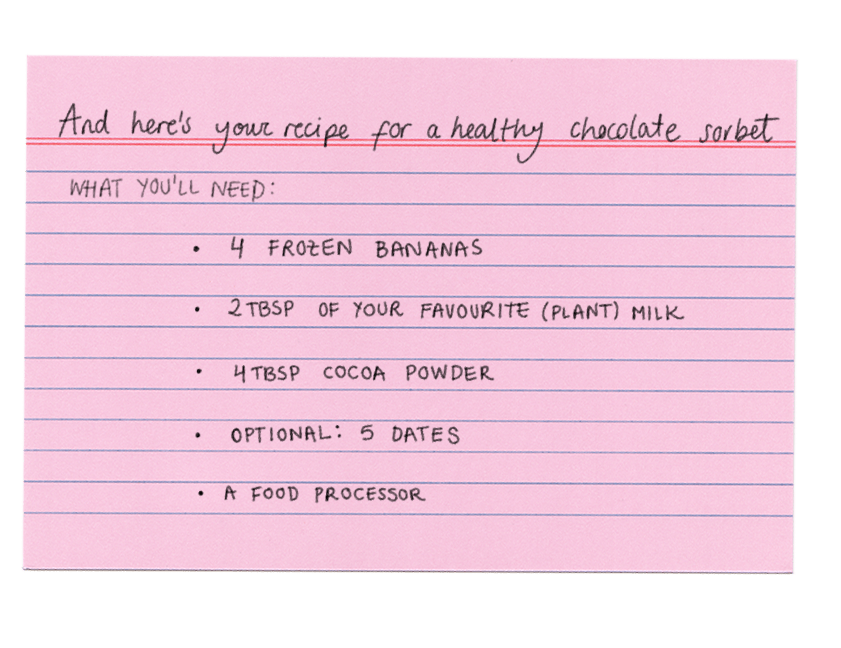 And here's your recipe for a healthy chocolate sorbet
WHAT YOU'LL NEED:
• 4 FROZEN BANANAS
• 2 TBSP OF YOUR FAVOURITE (PLANT) MILK
• 4 TBSP COCOA POWDER
• OPTIONAL: 5 DATES
• A FOOD PROCESSOR